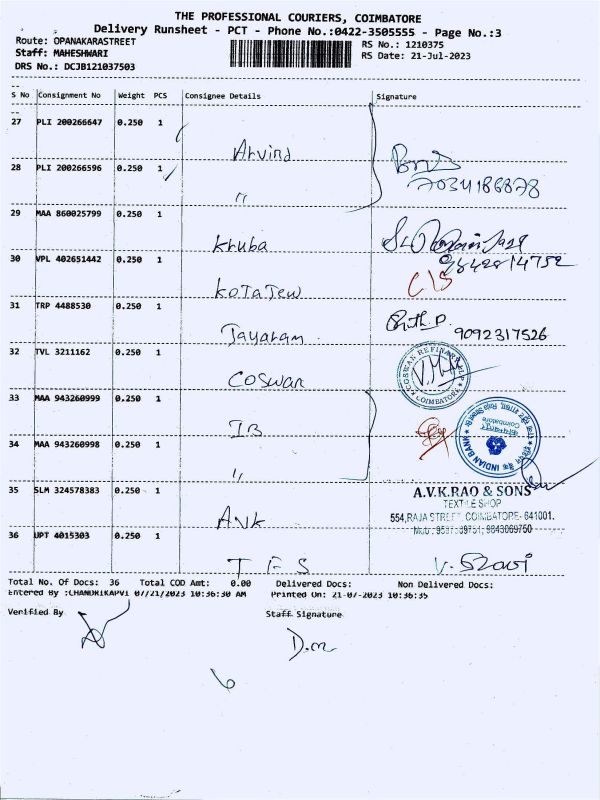 THE PROFESSIONAL COURIERS, COIMBATORE
Delivery Runsheet - PCT - Phone No.:0422-3505555 - Page No.:3
Route: OPANAKARASTREET
RS No.: 1210375
Staff: MAHESHWARI
RS Date: 21-Jul-2023
DRS No.: DCJB121037503
S No Consignment No Weight PCS Consignee Details Signature
27 PLI 200266647 0.250 1 Arvind
28 PLI 200266596 0.250 1 "
7034186878
29 MAA 860025799 0.250 1 Khuba
30 VPL 402651442 0.250 1 KOTAJEW
9842814752
C/S
31 TRP 4488530 0.250 1 Jayaram
9092317526
32 TVL 3211162 0.250 1 COSWAN
COSWAN REFINARY
COIMBATORE
33 MAA 943260999 0.250 1 IB
34 MAA 943260998 0.250 1 "
INDIAN BANK
Coimbatore
35 SLM 324578383 0.250 1 AVK
A.V.K.RAO & SONS
TEXTILE SHOP
554,RAJA STREET, COIMBATORE- 641001.
36 UPT 4015303 0.250 1 TFS
Total No. Of Docs: 36 Total COD Amt: 0.00 Delivered Docs: Non Delivered Docs:
Entered By :CHANDRIKAPVT 07/21/2023 10:36:30 AM Printed On: 21-07-2023 10:36:35
Verified By
Staff Signature
D.m